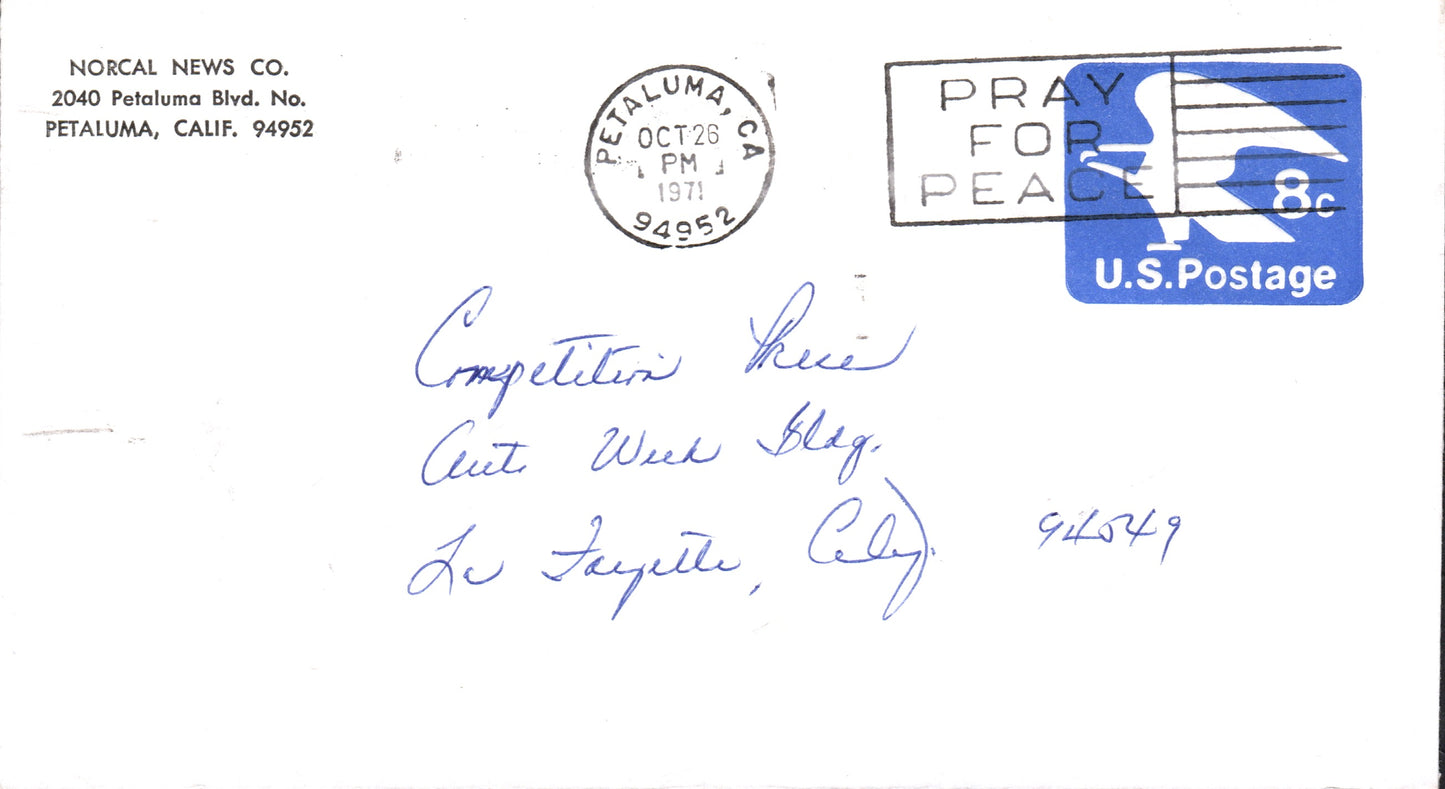 NORCAL NEWS CO.
2040 Petaluma Blvd. No.
PETALUMA, CALIF. 94952
PETALUMA, CA
OCT 26
PM
1971
94952
PRAY
FOR
PEACE
8c
U.S. Postage
Competition
Auto Week Bldg.
La Fayette, Calif. 94549